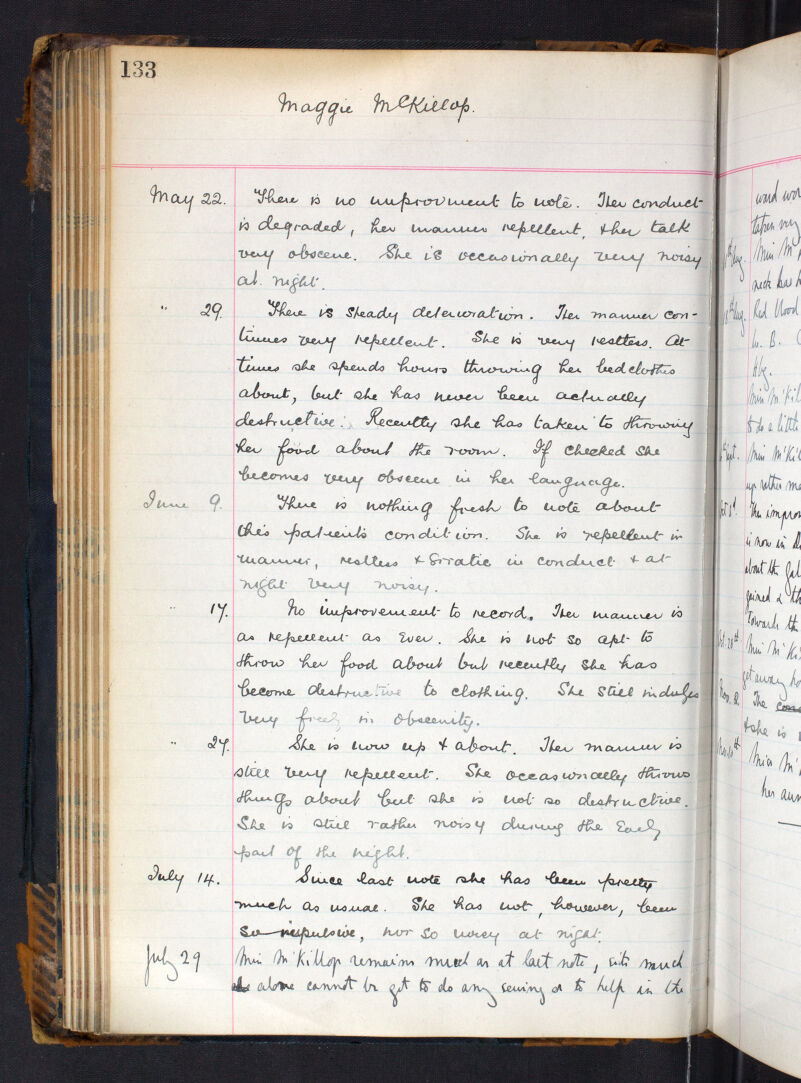 133
Maggie McKillop.
May 22. There is no improvment to note. Her conduct
is degraded, her manner repellent, & her talk
very obscene. She is occasionally very noisy
at night.
" 29. There is steady deterioration. Her manner con-
tinues very repellent. She is very restless. At
times she spends hours throwing her bedclothes
about, but she has never been actually
destructive. Recently she has taken to throwing
her food about the room. If checked she
becomes very obscene in her language.
June 9. There is nothing fresh to note about
this patient's condition. She is repellent in
manner, restless & erratic in conduct & at
night very noisy.
" 17. No improvement to record. Her manner is
as repellent as ever. She is not so apt to
throw her food about but recently she has
become destructive to clothing. She still indulges
very freely in obscenity.
" 27. She is now up & about. Her manner is
still very repellent. She occasionally throws
things about but she is not so destructive.
She is still rather noisy during the early
part of the night.
July 14. Since last note she has been pretty
much as usual. She has not, however, been
so impulsive, nor so noisy at night.
July 29 Miss McKillop remains much as at last note, sits much
alone cannot be got to do any sewing or to help in the
ward
taken
Miss
Red blood
Hbg.
to do a little
Sept.
is now in
about the
gained
towards the
The
& she is
Miss
her